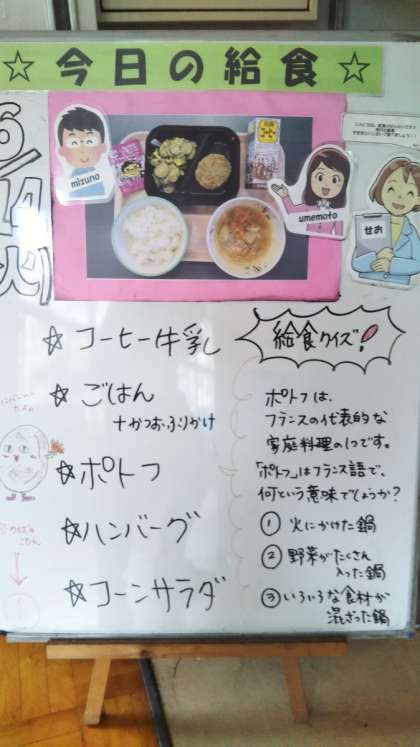 ☆今日の給食☆
6/14
火)
mizuno
umemoto
せお
☆コーヒー牛乳
☆ごはん
+かつおふりかけ
☆ポトフ
☆ハンバーグ
☆コーンサラダ
給食クイズ!
ポトフは、
フランスの代表的な
家庭料理の1つです。
「ポトフ」はフランス語で、
何という意味でしょうか?
① 火にかけた鍋
② 野菜がたくさん
入った鍋
③ いろいろな食材が
混ざった鍋